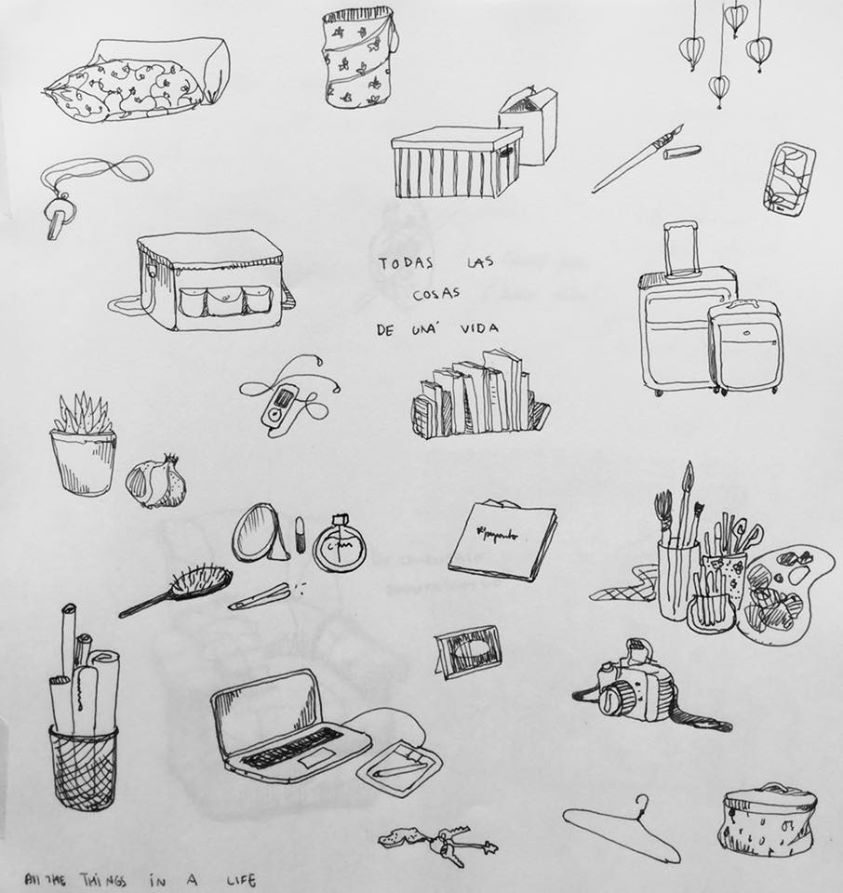 TODAS LAS
COSAS
DE UNA VIDA
All THE THINGS iN A LIFE